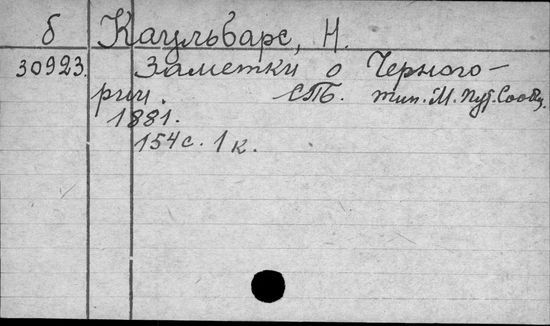 б Каульбарс, Н.
30923. Заметки о Черного-
рии. СПБ. тип. М. Пут. Сообщ.
1881.
154 с. 1 к.